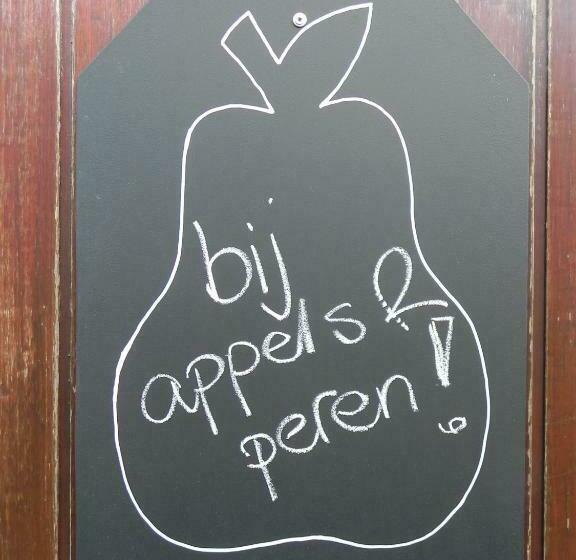 bij
appels &
peren!